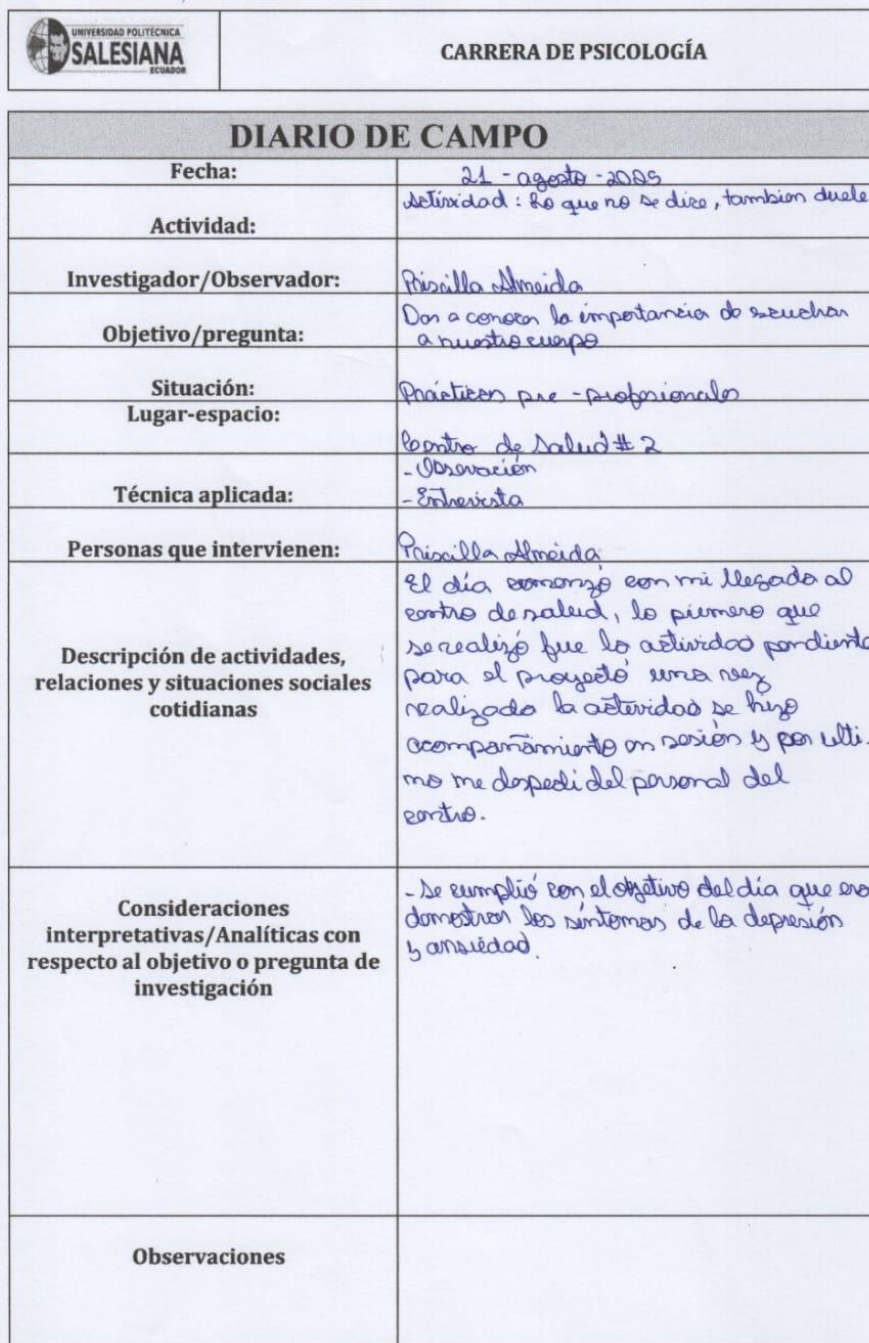 UNIVERSIDAD POLITÉCNICA
SALESIANA
ECUADOR
CARRERA DE PSICOLOGÍA
DIARIO DE CAMPO
Fecha:
21 - agosto - 2025
Actividad:
Actividad: Lo que no se dice, tambien duele
Investigador/Observador:
Priscilla Almeida
Objetivo/pregunta:
Dar a conocer la importancia de escuchar
a nuestro cuerpo
Situación:
Prácticas pre - profesionales
Lugar-espacio:
Centro de Salud # 2
Técnica aplicada:
- Observación
- Entrevista
Personas que intervienen:
Priscilla Almeida
Descripción de actividades,
relaciones y situaciones sociales
cotidianas
El día comenzó con mi llegada al
centro de salud, lo primero que
se realizó fue la actividad pendiente
para el proyecto una vez
realizada la actividad se hizo
acompañamiento en sesión y por ulti-
mo me despedi del personal del
centro.
Consideraciones
interpretativas/Analíticas con
respecto al objetivo o pregunta de
investigación
- Se cumplió con el objetivo del día que era
demostrar los síntomas de la depresión
y ansiedad.
Observaciones